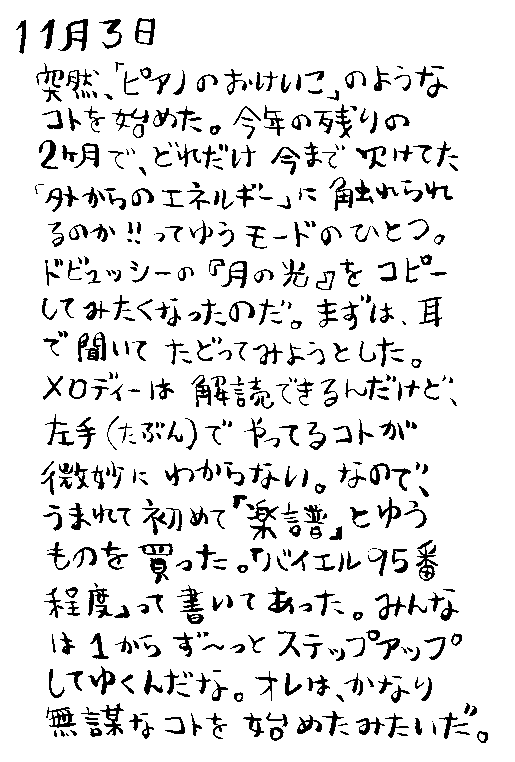 11月3日
突然、「ピアノのおけいこ」のような
コトを始めた。今年の残りの
2ヶ月で、どれだけ 今まで 欠けてた
「外からのエネルギー」に 触れられ
るのか!!ってゆうモードのひとつ。
ドビュッシーの『月の光』を コピー
してみたくなったのだ。まずは、耳
で 聞いて たどってみようとした。
メロディーは 解読できるんだけど、
左手(たぶん)で やってるコトが
微妙に わからない。なので、
うまれて 初めて「楽譜」とゆう
ものを 買った。「バイエル95番
程度」って 書いてあった。みんな
は 1から ず〜っと ステップアップ
してゆくんだな。オレは、かなり
無謀なコトを 始めたみたいだ。